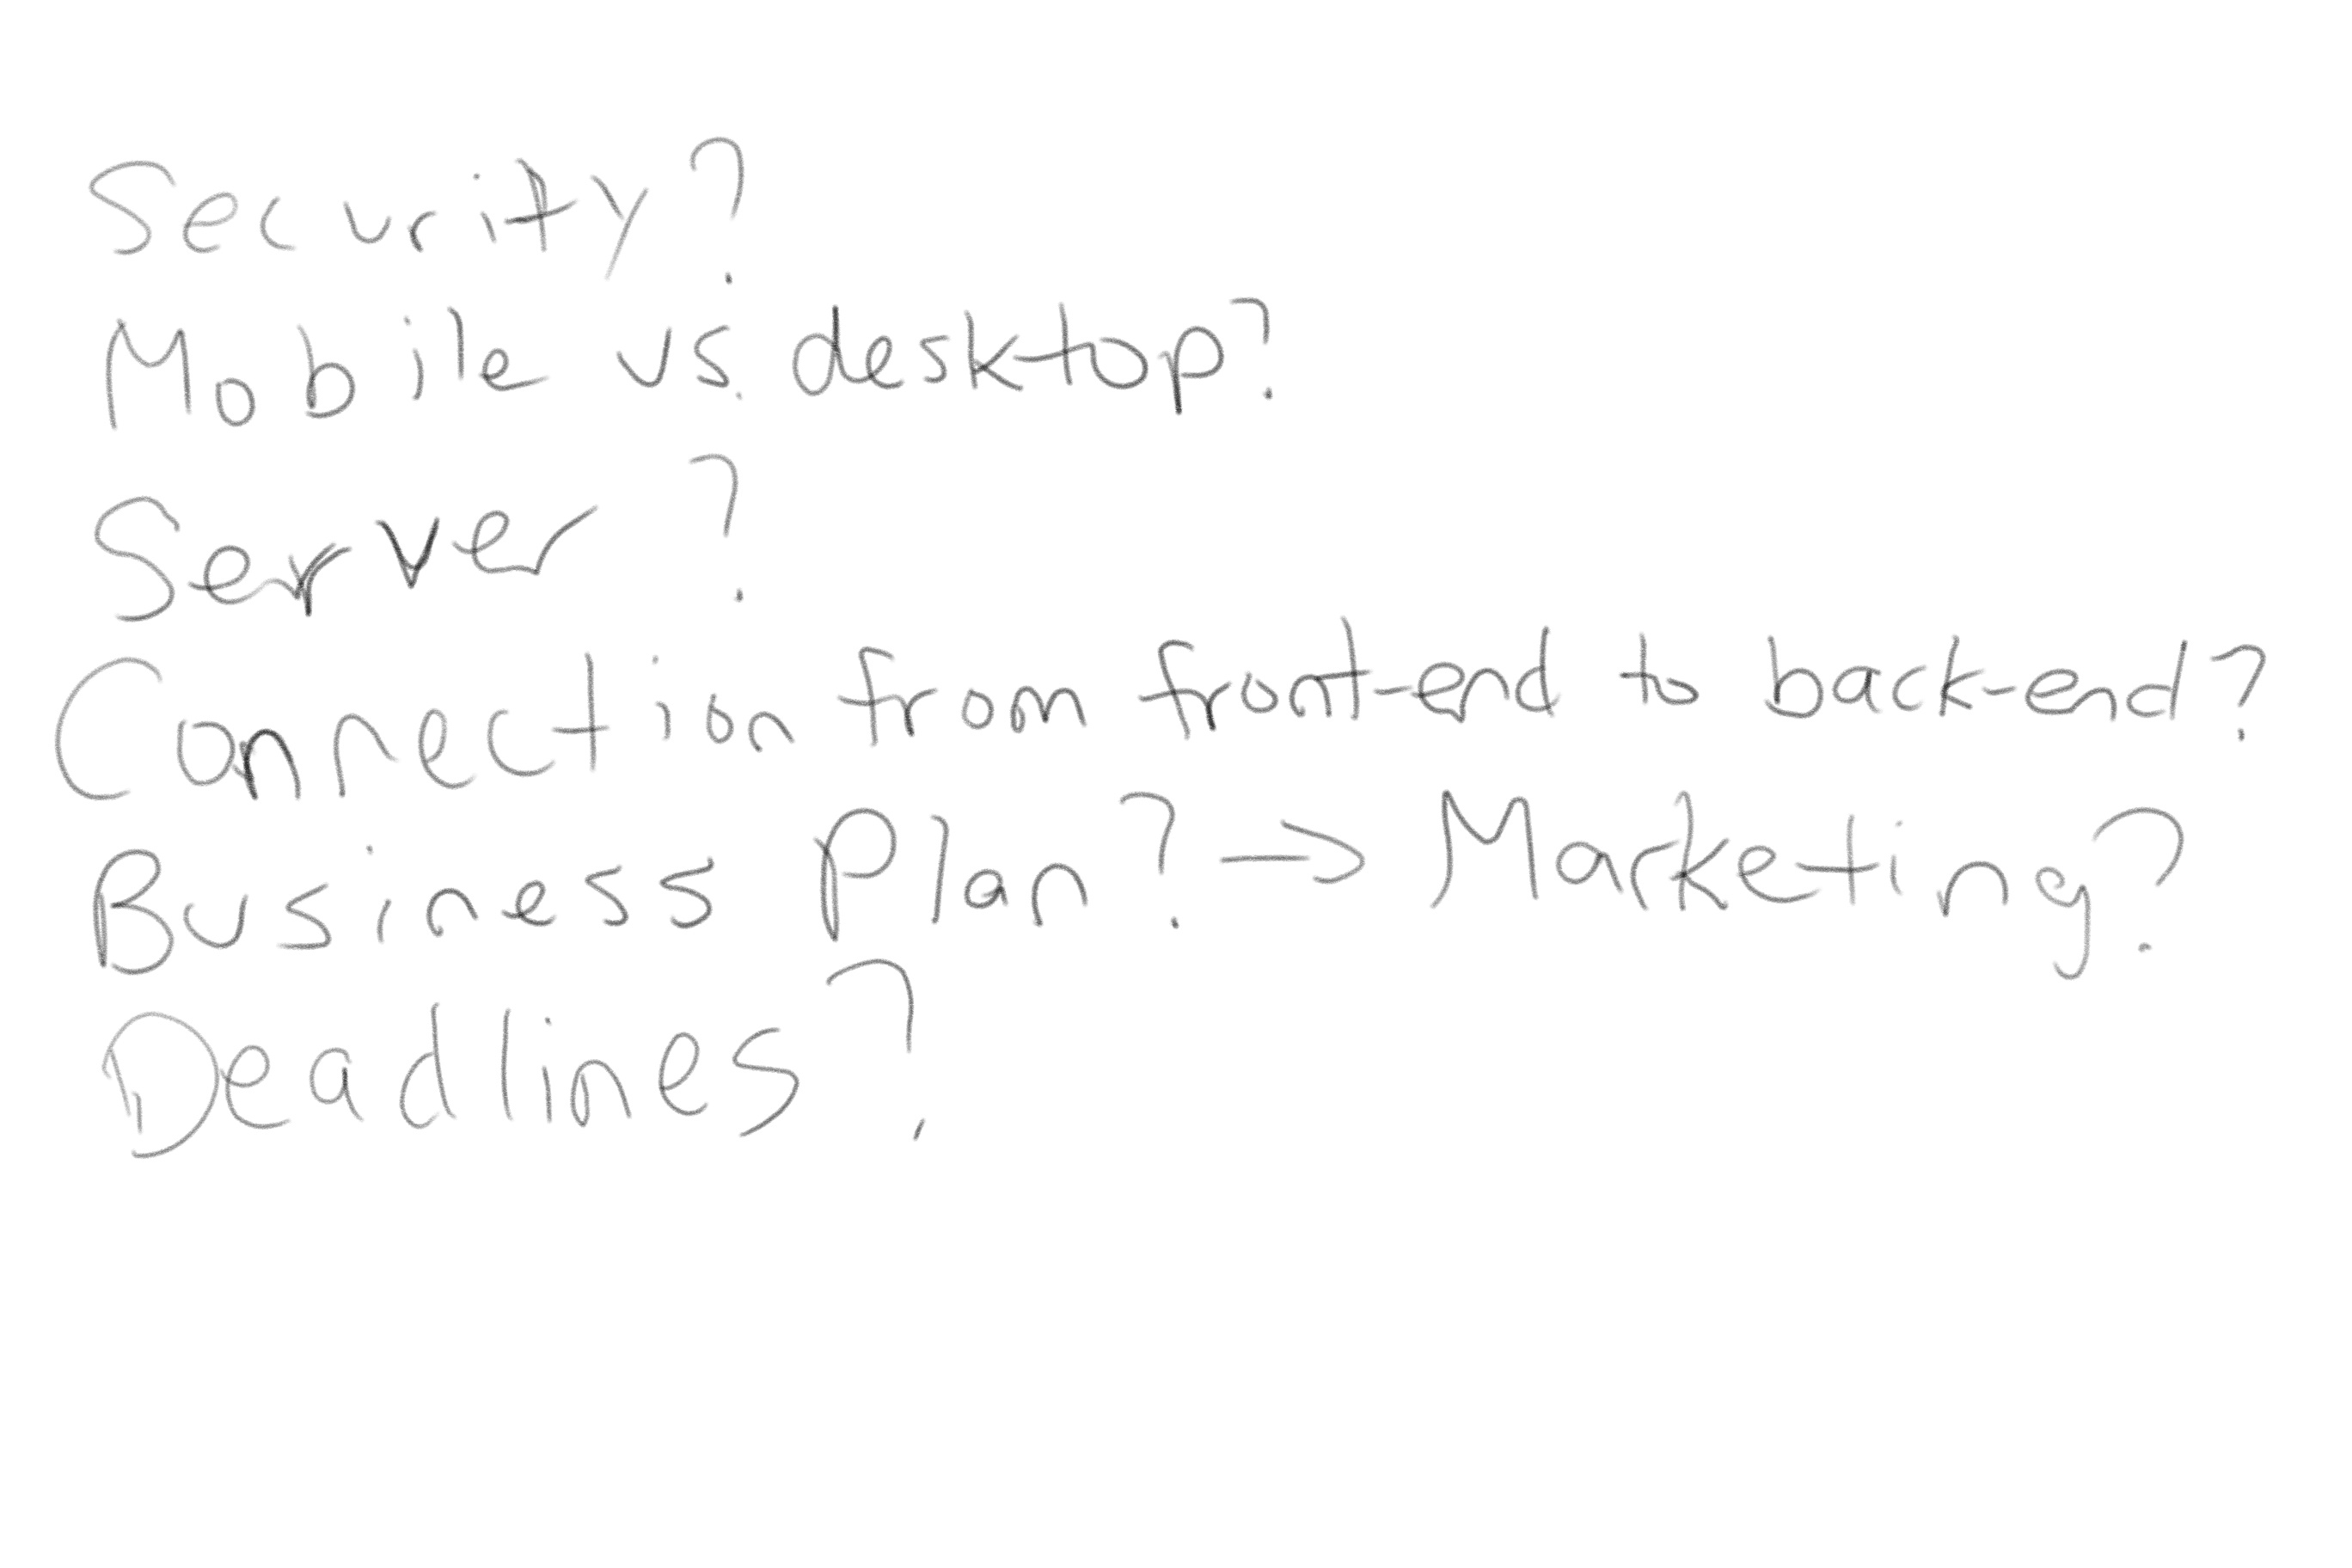 Security?
Mobile vs. desktop?
Server?
Connection from front-end to back-end?
Business Plan? → Marketing?
Deadlines?